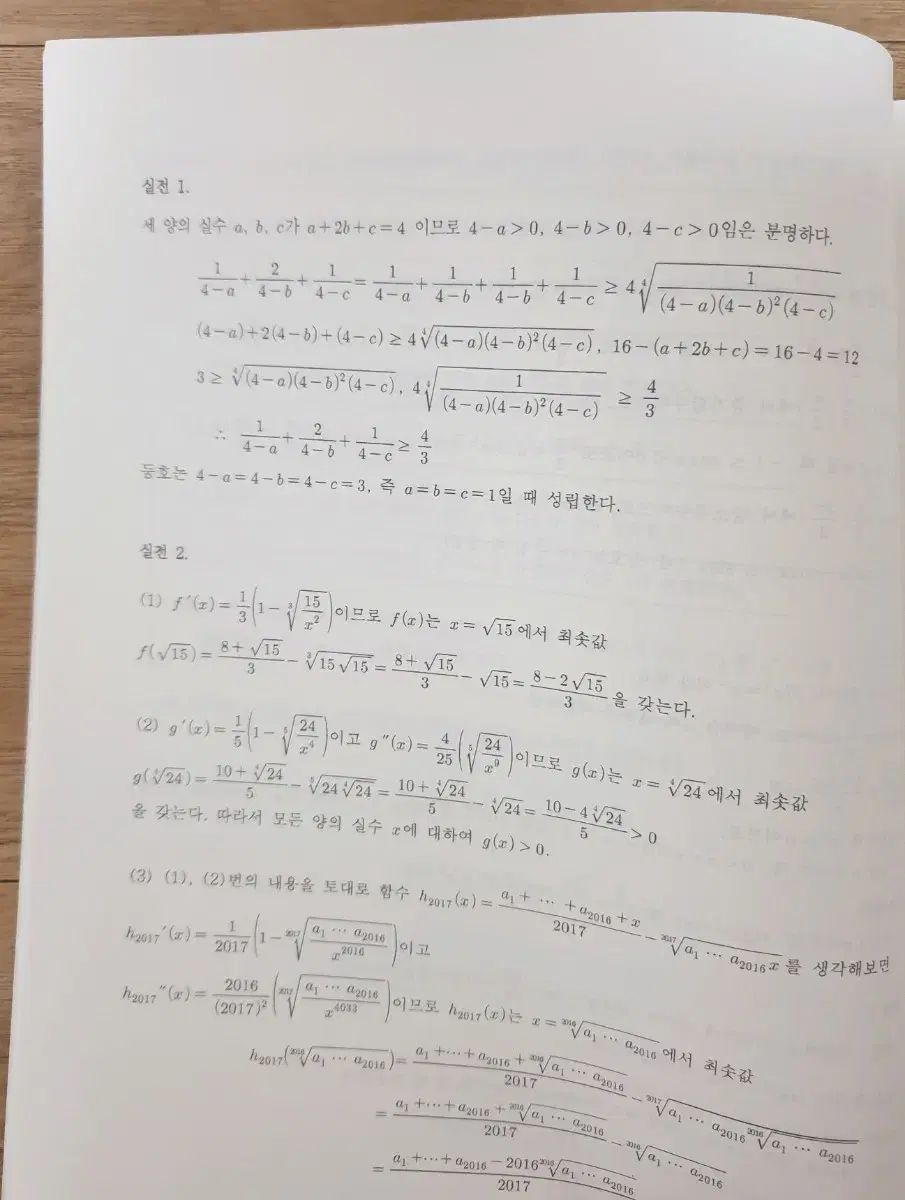 실전 1.
세 양의 실수 a, b, c가 a+2b+c=4 이므로 4-a>0, 4-b>0, 4-c>0임은 분명하다.
\frac{1}{4-a}+\frac{2}{4-b}+\frac{1}{4-c}=\frac{1}{4-a}+\frac{1}{4-b}+\frac{1}{4-b}+\frac{1}{4-c}≥4\sqrt[4]{\frac{1}{(4-a)(4-b)^2(4-c)}}
(4-a)+2(4-b)+(4-c)≥4\sqrt[4]{(4-a)(4-b)^2(4-c)}, 16-(a+2b+c)=16-4=12
3≥\sqrt[4]{(4-a)(4-b)^2(4-c)}, 4\sqrt[4]{\frac{1}{(4-a)(4-b)^2(4-c)}} ≥ \frac{4}{3}
∴ \frac{1}{4-a}+\frac{2}{4-b}+\frac{1}{4-c}≥\frac{4}{3}
등호는 4-a=4-b=4-c=3, 즉 a=b=c=1일 때 성립한다.
실전 2.
(1) f'(x)=\frac{1}{3}\left(1-\sqrt[3]{\frac{15}{x^2}}\right)이므로 f(x)는 x=\sqrt{15}에서 최솟값
f(\sqrt{15})=\frac{8+\sqrt{15}}{3}-\sqrt[3]{15\sqrt{15}}=\frac{8+\sqrt{15}}{3}-\sqrt{15}=\frac{8-2\sqrt{15}}{3}을 갖는다.
(2) g'(x)=\frac{1}{5}\left(1-\sqrt[5]{\frac{24}{x^4}}\right)이고 g''(x)=\frac{4}{25}\left(\sqrt[5]{\frac{24}{x^9}}\right)이므로 g(x)는 x=\sqrt[4]{24}에서 최솟값
g(\sqrt[4]{24})=\frac{10+\sqrt[4]{24}}{5}-\sqrt[5]{24\sqrt[4]{24}}=\frac{10+\sqrt[4]{24}}{5}-\sqrt[4]{24}=\frac{10-4\sqrt[4]{24}}{5}>0
을 갖는다. 따라서 모든 양의 실수 x에 대하여 g(x)>0.
(3) (1), (2)번의 내용을 토대로 함수 h_{2017}(x)=\frac{a_1+ ⋯ +a_{2016}+x}{2017}-\sqrt[2017]{a_1 ⋯ a_{2016}x}를 생각해보면
h_{2017}'(x)=\frac{1}{2017}\left(1-\sqrt[2017]{\frac{a_1 ⋯ a_{2016}}{x^{2016}}}\right)이고
h_{2017}''(x)=\frac{2016}{(2017)^2}\left(\sqrt[2017]{\frac{a_1 ⋯ a_{2016}}{x^{4033}}}\right)이므로 h_{2017}(x)는 x=\sqrt[2016]{a_1 ⋯ a_{2016}}에서 최솟값
h_{2017}(\sqrt[2016]{a_1 ⋯ a_{2016}})=\frac{a_1+⋯+a_{2016}+\sqrt[2016]{a_1 ⋯ a_{2016}}}{2017}-\sqrt[2017]{a_1 ⋯ a_{2016}\sqrt[2016]{a_1 ⋯ a_{2016}}}
=\frac{a_1+⋯+a_{2016}+\sqrt[2016]{a_1 ⋯ a_{2016}}}{2017}-\sqrt[2016]{a_1 ⋯ a_{2016}}
=\frac{a_1+⋯+a_{2016}-2016\sqrt[2016]{a_1 ⋯ a_{2016}}}{2017}